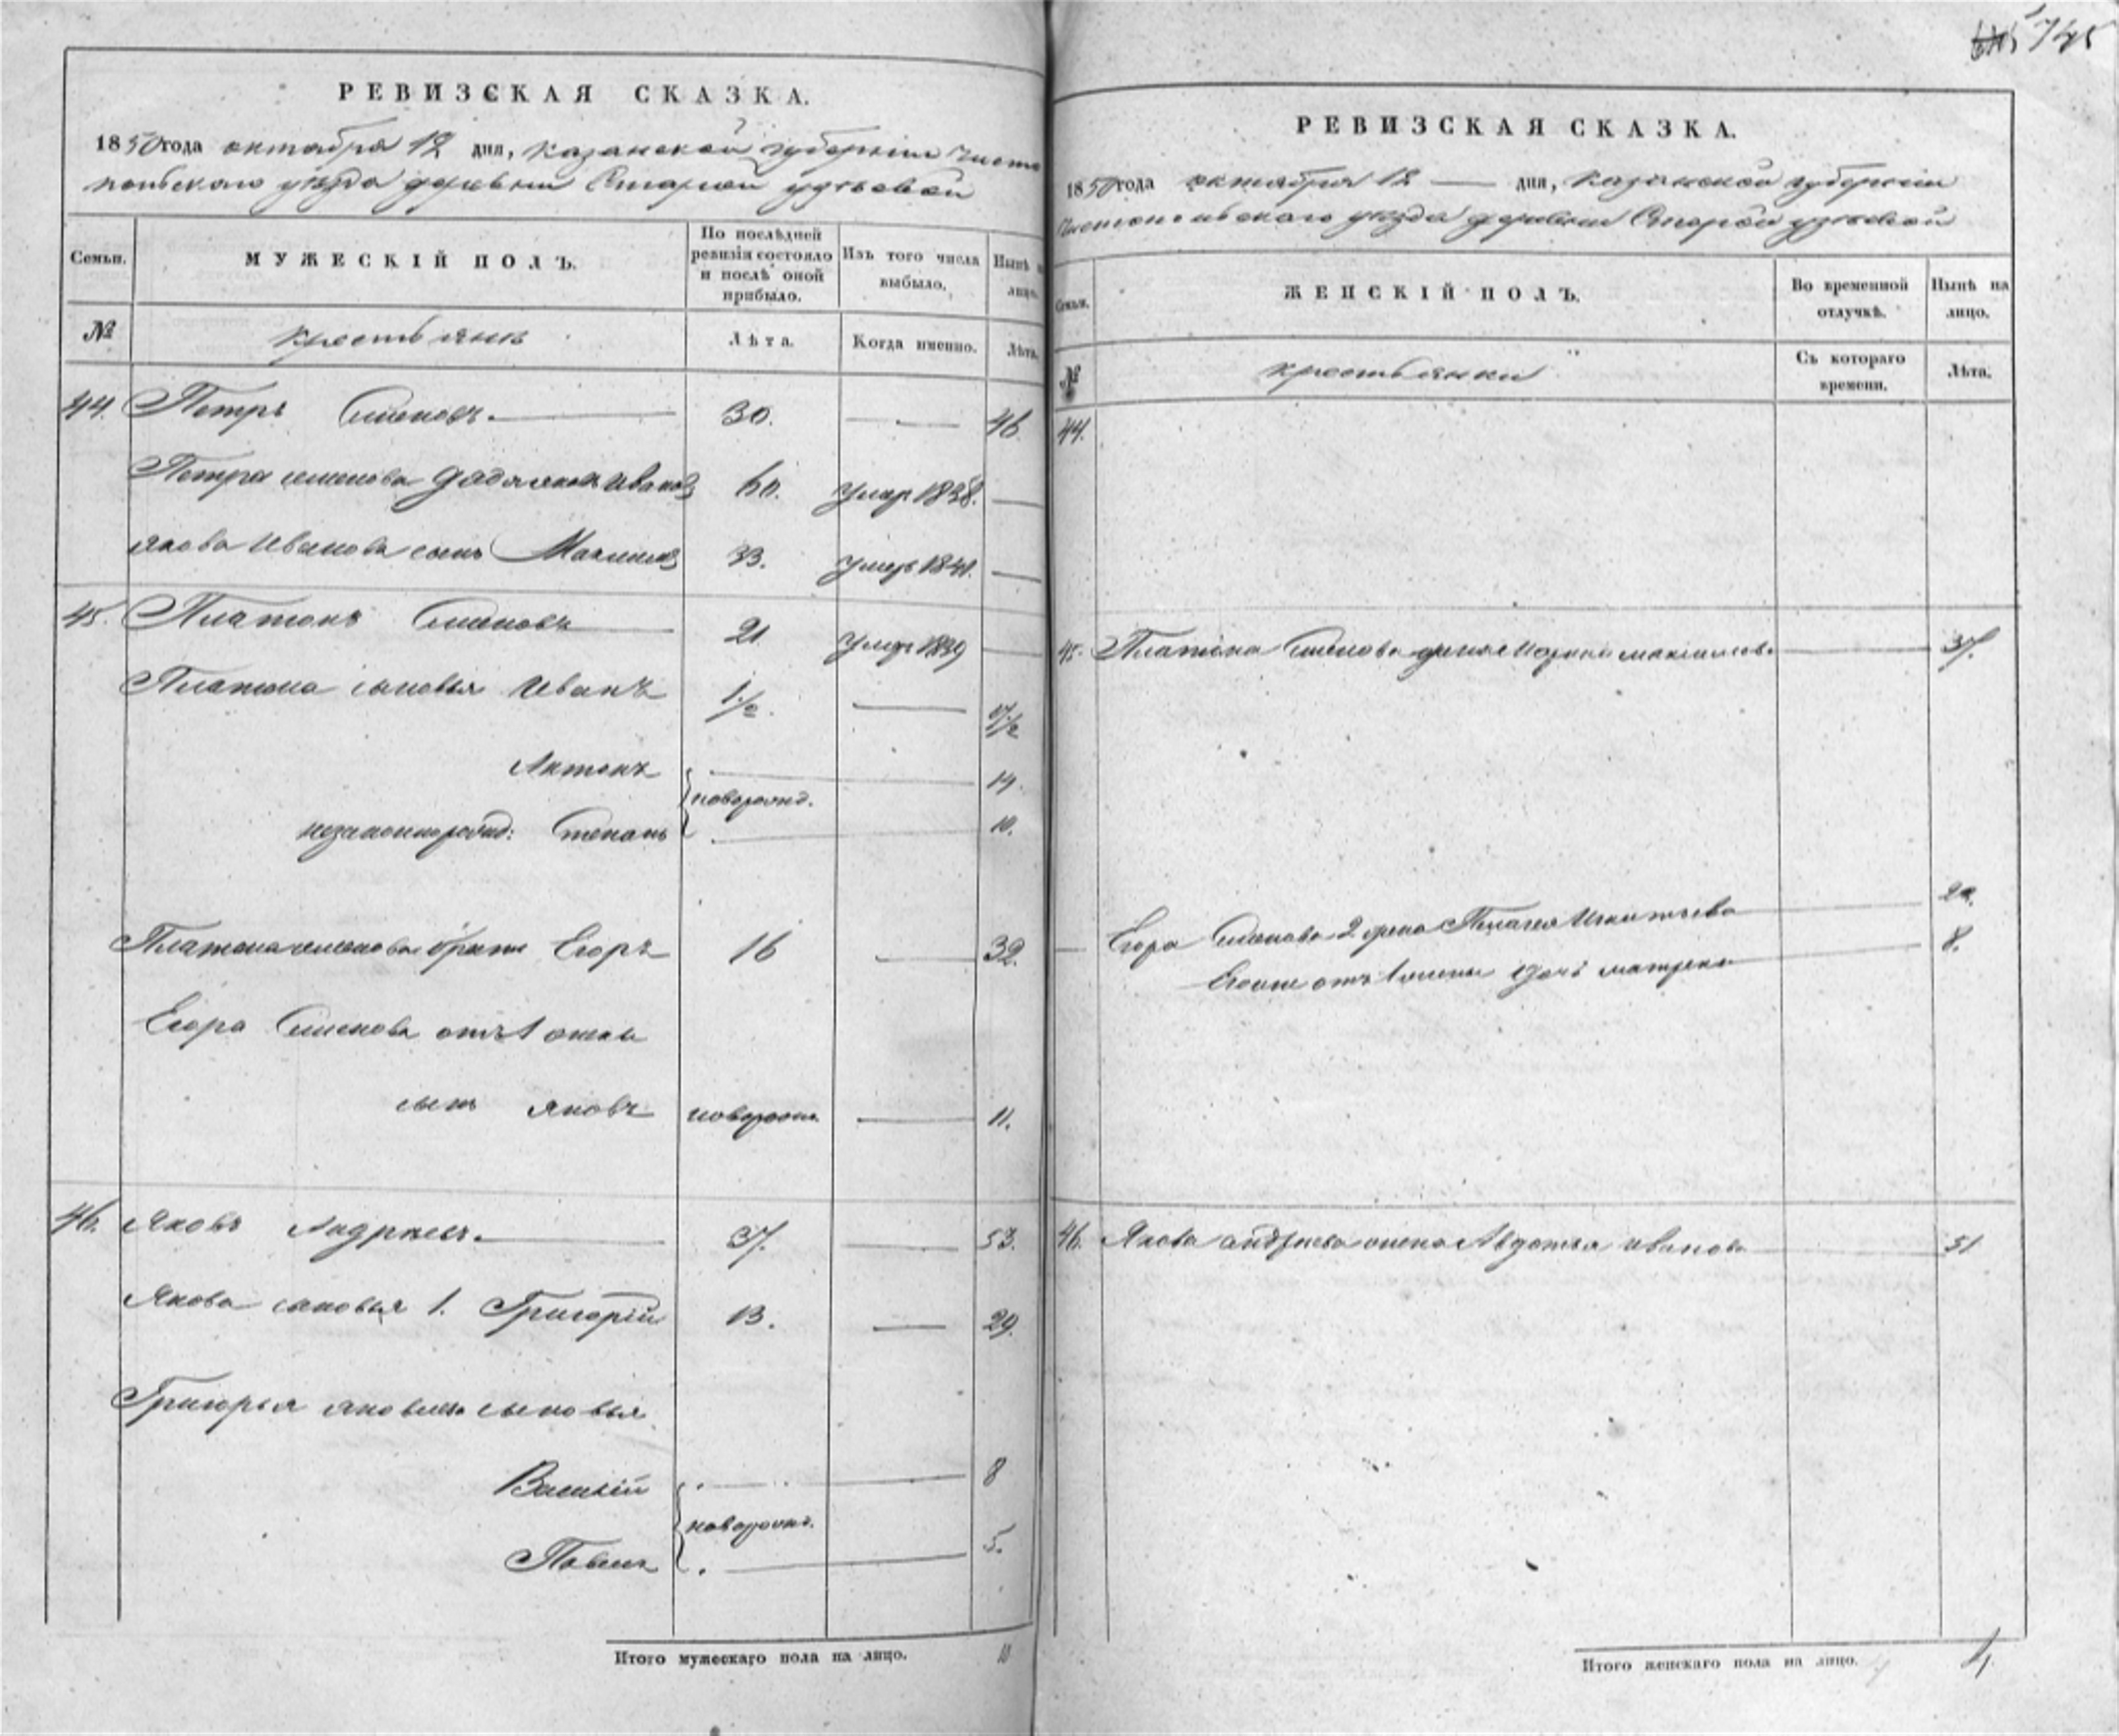 745
РЕВИЗСКАЯ СКАЗКА.
1850 года октября 12 дня, казанской губернии Чисто
польскаго уѣзда деревни Старой
Семьи.
МУЖЕСКІЙ ПОЛЪ.
По послѣдней ревизіи состояло и послѣ оной прибыло.
Изъ того числа выбыло.
Нынѣ на лицо.
№
крестьянъ
Лѣта.
Когда именно.
Лѣта.
44. Петръ Семеновъ. 30. 46
Петра семенова дядя яковъ Ивановъ 60. умер 1838.
якова Иванова сынъ Максимъ 33. умеръ 1841.
45. Платонъ Семеновъ 21 умер 1839
Платона сыновья Иванъ 1/2. 17/2
Антонъ 14.
новорожд.
незаконнорожд: Степанъ 10.
Платона семенова братъ Егоръ 16 32.
Егора Семенова отъ 1 жены
сынъ яковъ новорожд. 11.
46. Яковъ Андреевъ. 37. 53.
Якова сыновья 1. Григорій 13. 29.
Григорья яковлева сыновья
Василій 8
новорожд.
Павелъ 5.
Итого мужескаго пола на лицо. 10
РЕВИЗСКАЯ СКАЗКА.
1850 года октября 12 дня, казанской губерніи
Чистопольскаго уѣзда деревни Старой
Семьи.
ЖЕНСКІЙ ПОЛЪ.
Во временной отлучкѣ.
Нынѣ на лицо.
№
крестьянки
Съ котораго времени.
Лѣта.
44.
45. Платона Семенова жена максимова 37.
Егора Семенова 2 жена Пелагея Игнатьева
Егоже отъ 1 жены дочь матрена 8.
46. Якова андреева жена Авдотья иванова 51
Итого женскаго пола на лицо. 4